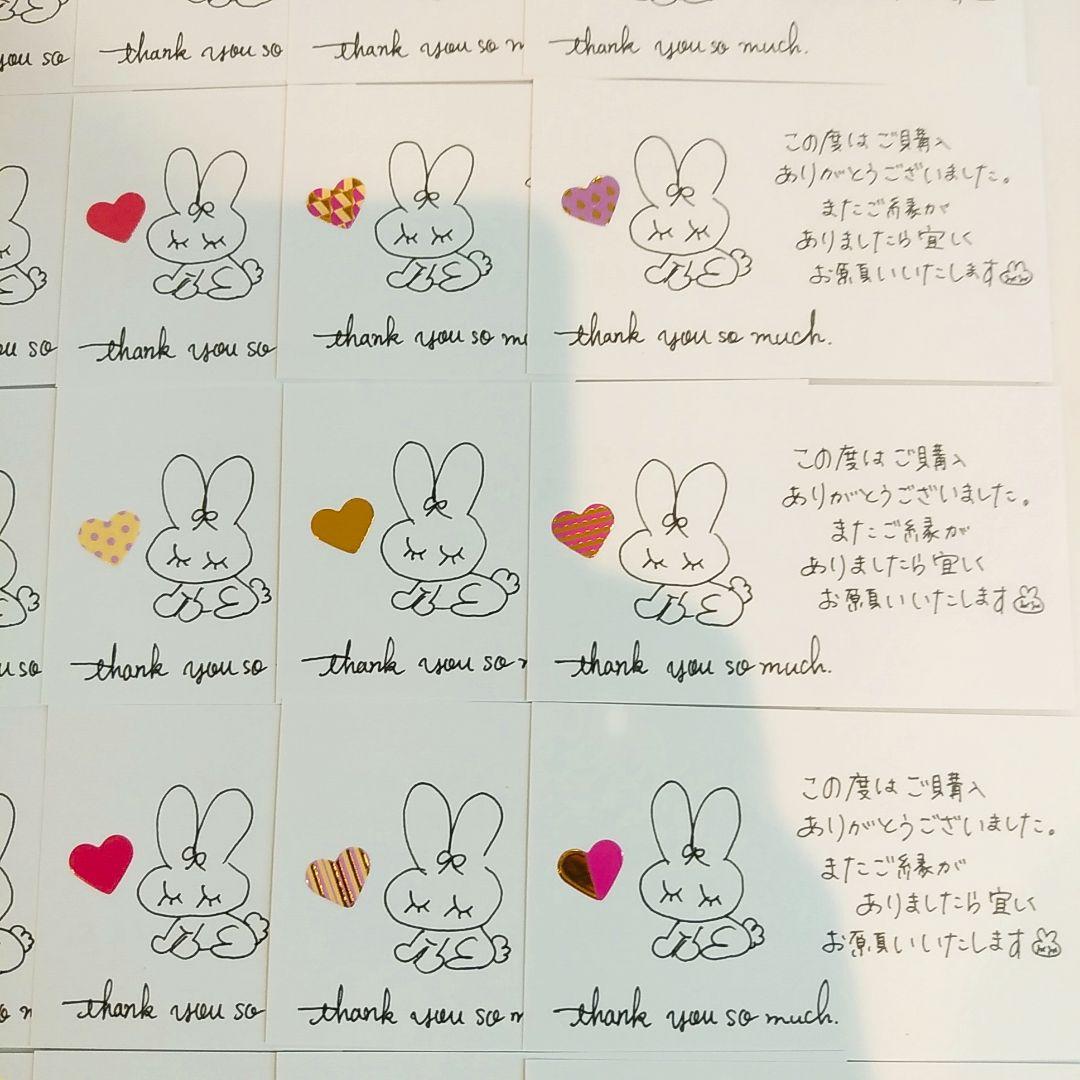 you so
thank you so
thank you so
thank you so much.
この度はご購入
ありがとうございました。
またご縁が
ありましたら宜しく
お願いいたします
so
thank you so
thank you so
thank you so much.
この度はご購入
ありがとうございました。
またご縁が
ありましたら宜しく
お願いいたします
so
thank you so
thank you so
thank you so much.
この度はご購入
ありがとうございました。
またご縁が
ありましたら宜しく
お願いいたします
thank you so
thank you so
thank you so much.